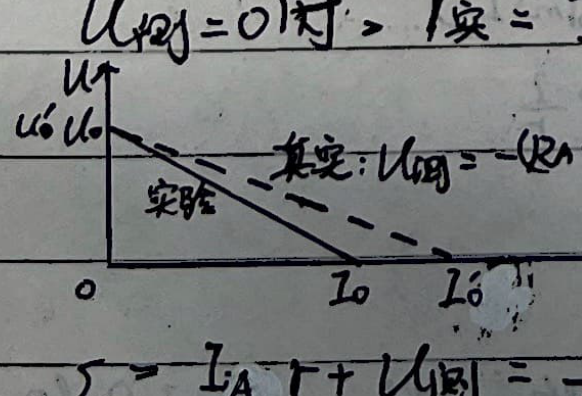 U测=0时, I实=
U
U₀' U₀
真实: U测=-(RA
实验
0 I₀ I₀'
= IA r + U测 = -